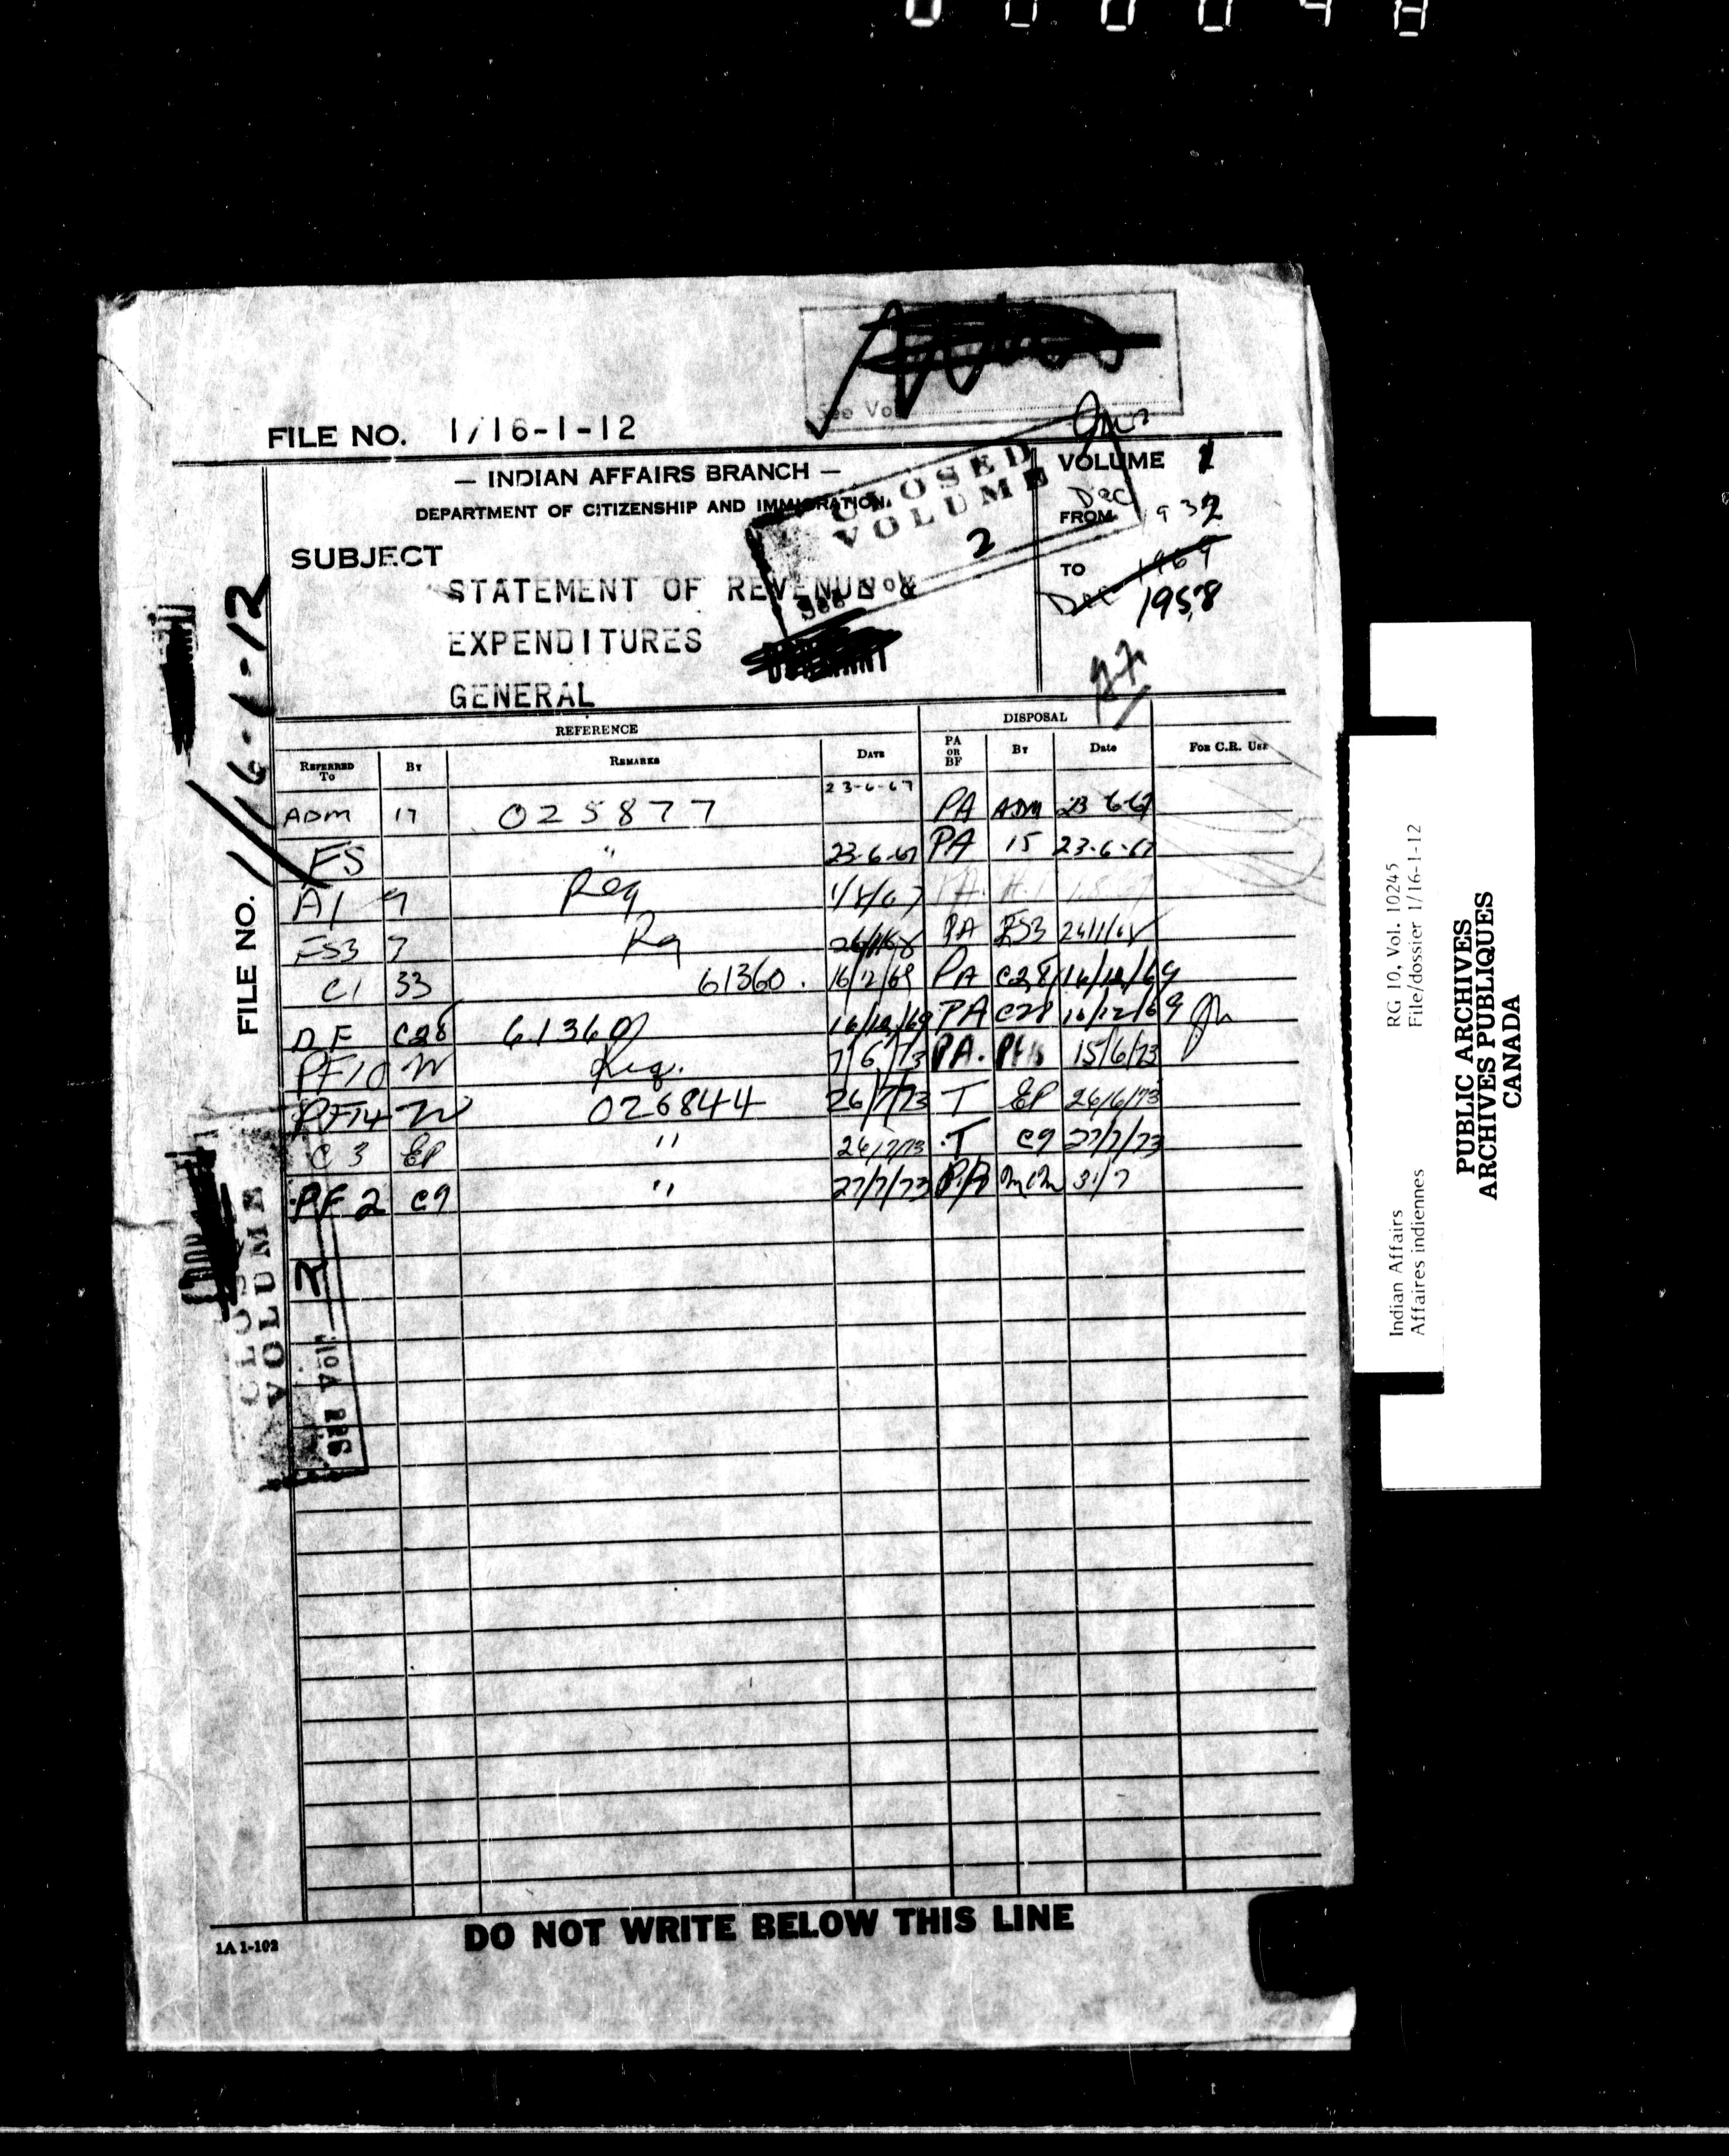 FILE NO. 1/16-1-12
See Vol
— INDIAN AFFAIRS BRANCH —
DEPARTMENT OF CITIZENSHIP AND IMMIGRATION.
CLOSED
VOLUME
2
See Vol
VOLUME 1
FROM Dec 1932
TO Dec 1969
1958
SUBJECT
STATEMENT OF REVENUE &
EXPENDITURES
GENERAL
REFERENCE DISPOSAL
REFERRED TO BY REMARKS DATE PA OR BF BY Date FOR C.R. USE
ADM 17 025877 23-6-67 PA ADM 23-6-67
FS " 23-6-67 PA 15 23-6-67
A1 9 Req 1/8/67 PA. A.1 1.8.67
FS3 7 Rq PA FS3
C1 33 61360. 16/12/69 PA C28 16/12/69
DF C28 61360 16/12/69 PA C28 16/12/69
PF10 W Req. 7/6/73 PA. 15/6/73
PF14 W 026844 26/7/73 T EP 26/6/73
C3 EP " 26/7/73 T C9 27/7/73
PF2 C9 " 27/7/73 PA 31/7
FILE NO. 1/16-1-12
CLOSED
VOLUME
2
See Vol
DO NOT WRITE BELOW THIS LINE
1A 1-102
Indian Affairs RG 10, Vol. 10245
Affaires indiennes File/dossier 1/16-1-12
PUBLIC ARCHIVES
ARCHIVES PUBLIQUES
CANADA